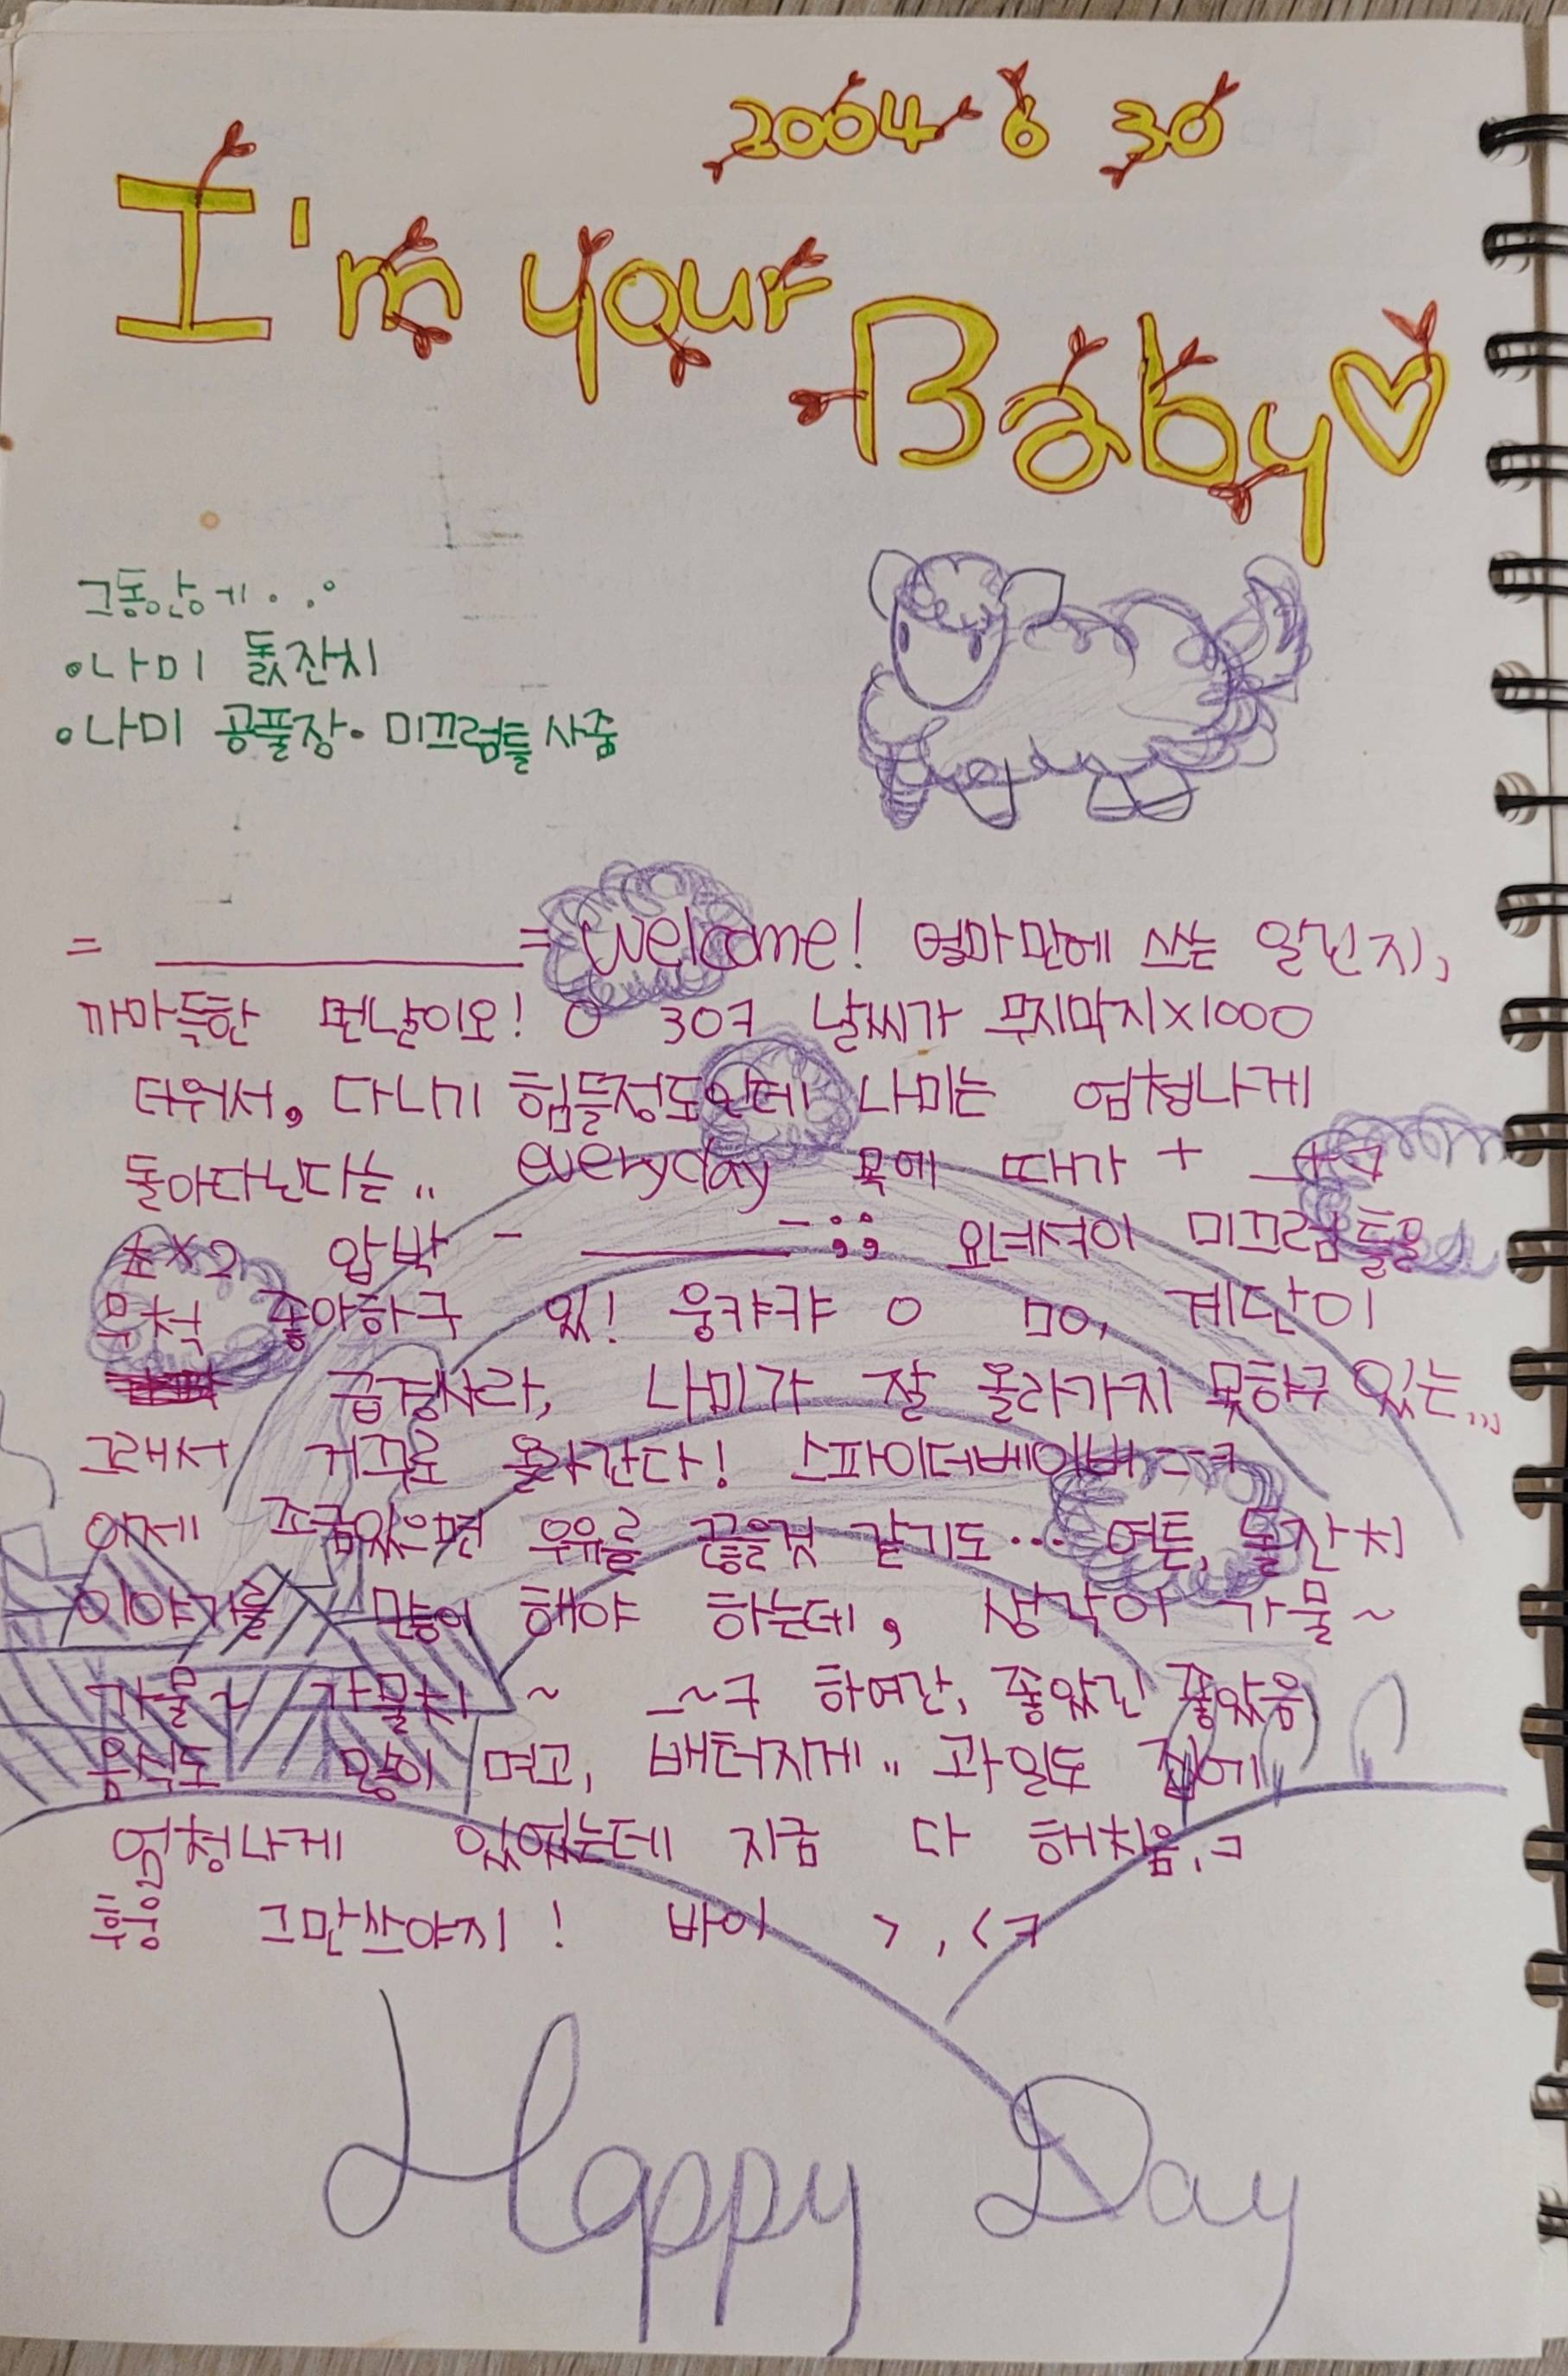 2004 6 30
I'm your
Baby♡
그동안에...
•나미 돐잔치
•나미 공풀장•미끄럼틀 사줌
= ________= welcome! 얼마만에 쓰는 일긴지,
까마득한 먼날이오! 0 30ㅋ 날씨가 무지막지×1000
더워서, 다니기 힘들정도인데 나미는 엄청나게
돌아다닌다는.. everyday 목에 때가 + _+ㅋ
초×2 압박 - ______-;; 요녀석이 미끄럼틀을
무척 좋아하구 있! 웅캬캬 ㅇ ㅁㅇ, 계단이
급경사라, 나미가 잘 올라가지 못하구 있는...
그래서 거꾸로 올라간다! 스파이더베이비--ㅋ
이제 조금있으면 우유를 끊을것 같기도... 여튼, 돌잔치
이야기를 많이 해야 하는데, 생각이 가물~
가물~ 가물치 ~ _~ㅋ 하여간, 좋았긴 좋았음
음식도 많이 먹고, 배터지게.. 과일도 집에
엄청나게 있었는데 지금 다 해치움.ㅋ
그만쓰야지! 바이 >,<ㅋ
Happy Day